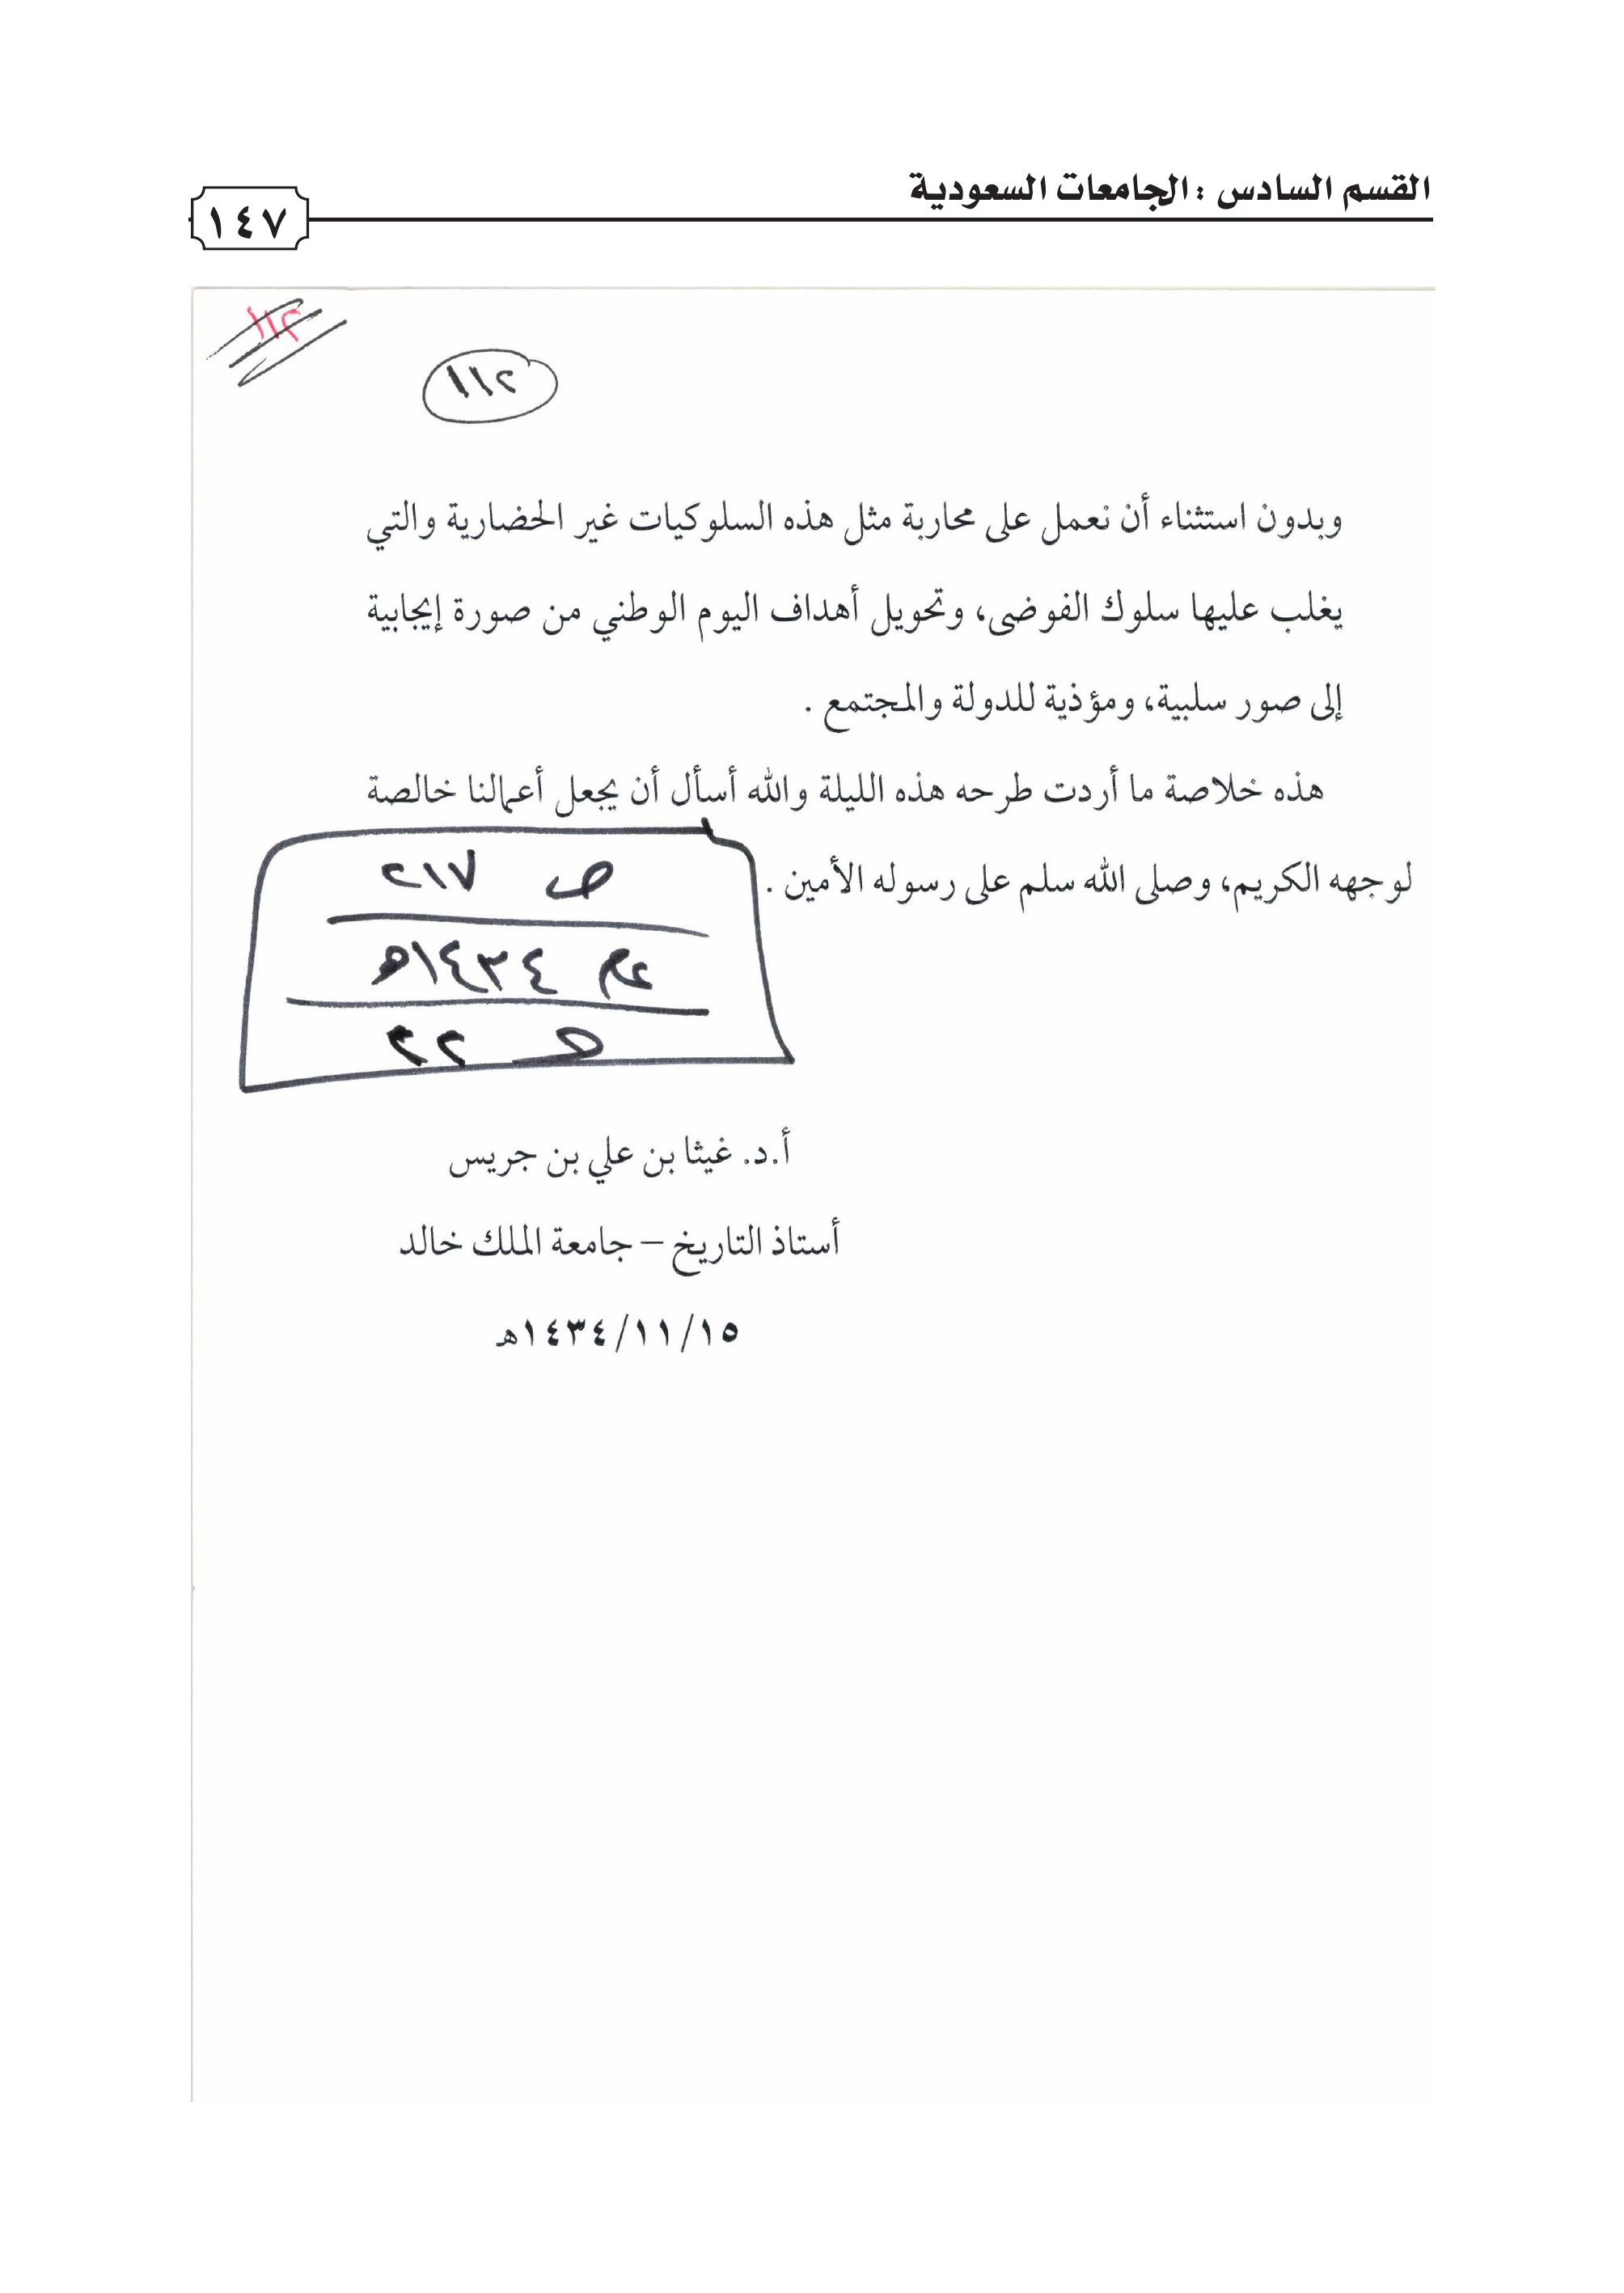 القسم السادس : الجامعات السعودية
١٤٧
١١٢
١١٢
وبدون استثناء أن نعمل على محاربة مثل هذه السلوكيات غير الحضارية والتي
يغلب عليها سلوك الفوضى، وتحويل أهداف اليوم الوطني من صورة إيجابية
إلى صور سلبية، ومؤذية للدولة والمجتمع .
هذه خلاصة ما أردت طرحه هذه الليلة والله أسأل أن يجعل أعمالنا خالصة
لوجهه الكريم، وصلى الله سلم على رسوله الأمين .
ص ٢١٧
١٤٣٤هـ
٢٢
أ.د. غيثا بن علي بن جريس
أستاذ التاريخ – جامعة الملك خالد
١٤٣٤/١١/١٥هـ